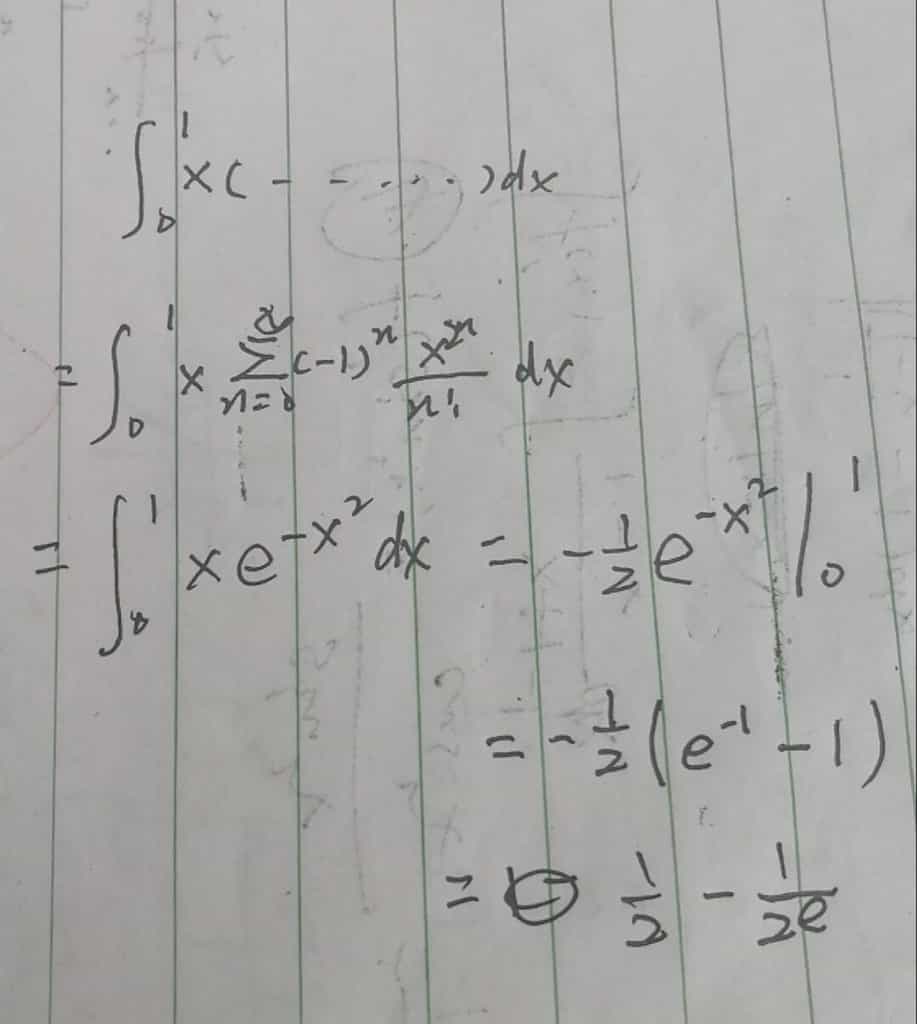 ∫₀¹ x( - - ····· )dx
= ∫₀¹ x ∑_{n=0}^{∞} (-1)ⁿ x²ⁿ/n! dx
= ∫₀¹ x e^{-x²} dx = -1/2 e^{-x²} |₀¹
= -1/2 (e⁻¹ - 1)
= 1/2 - 1/2e